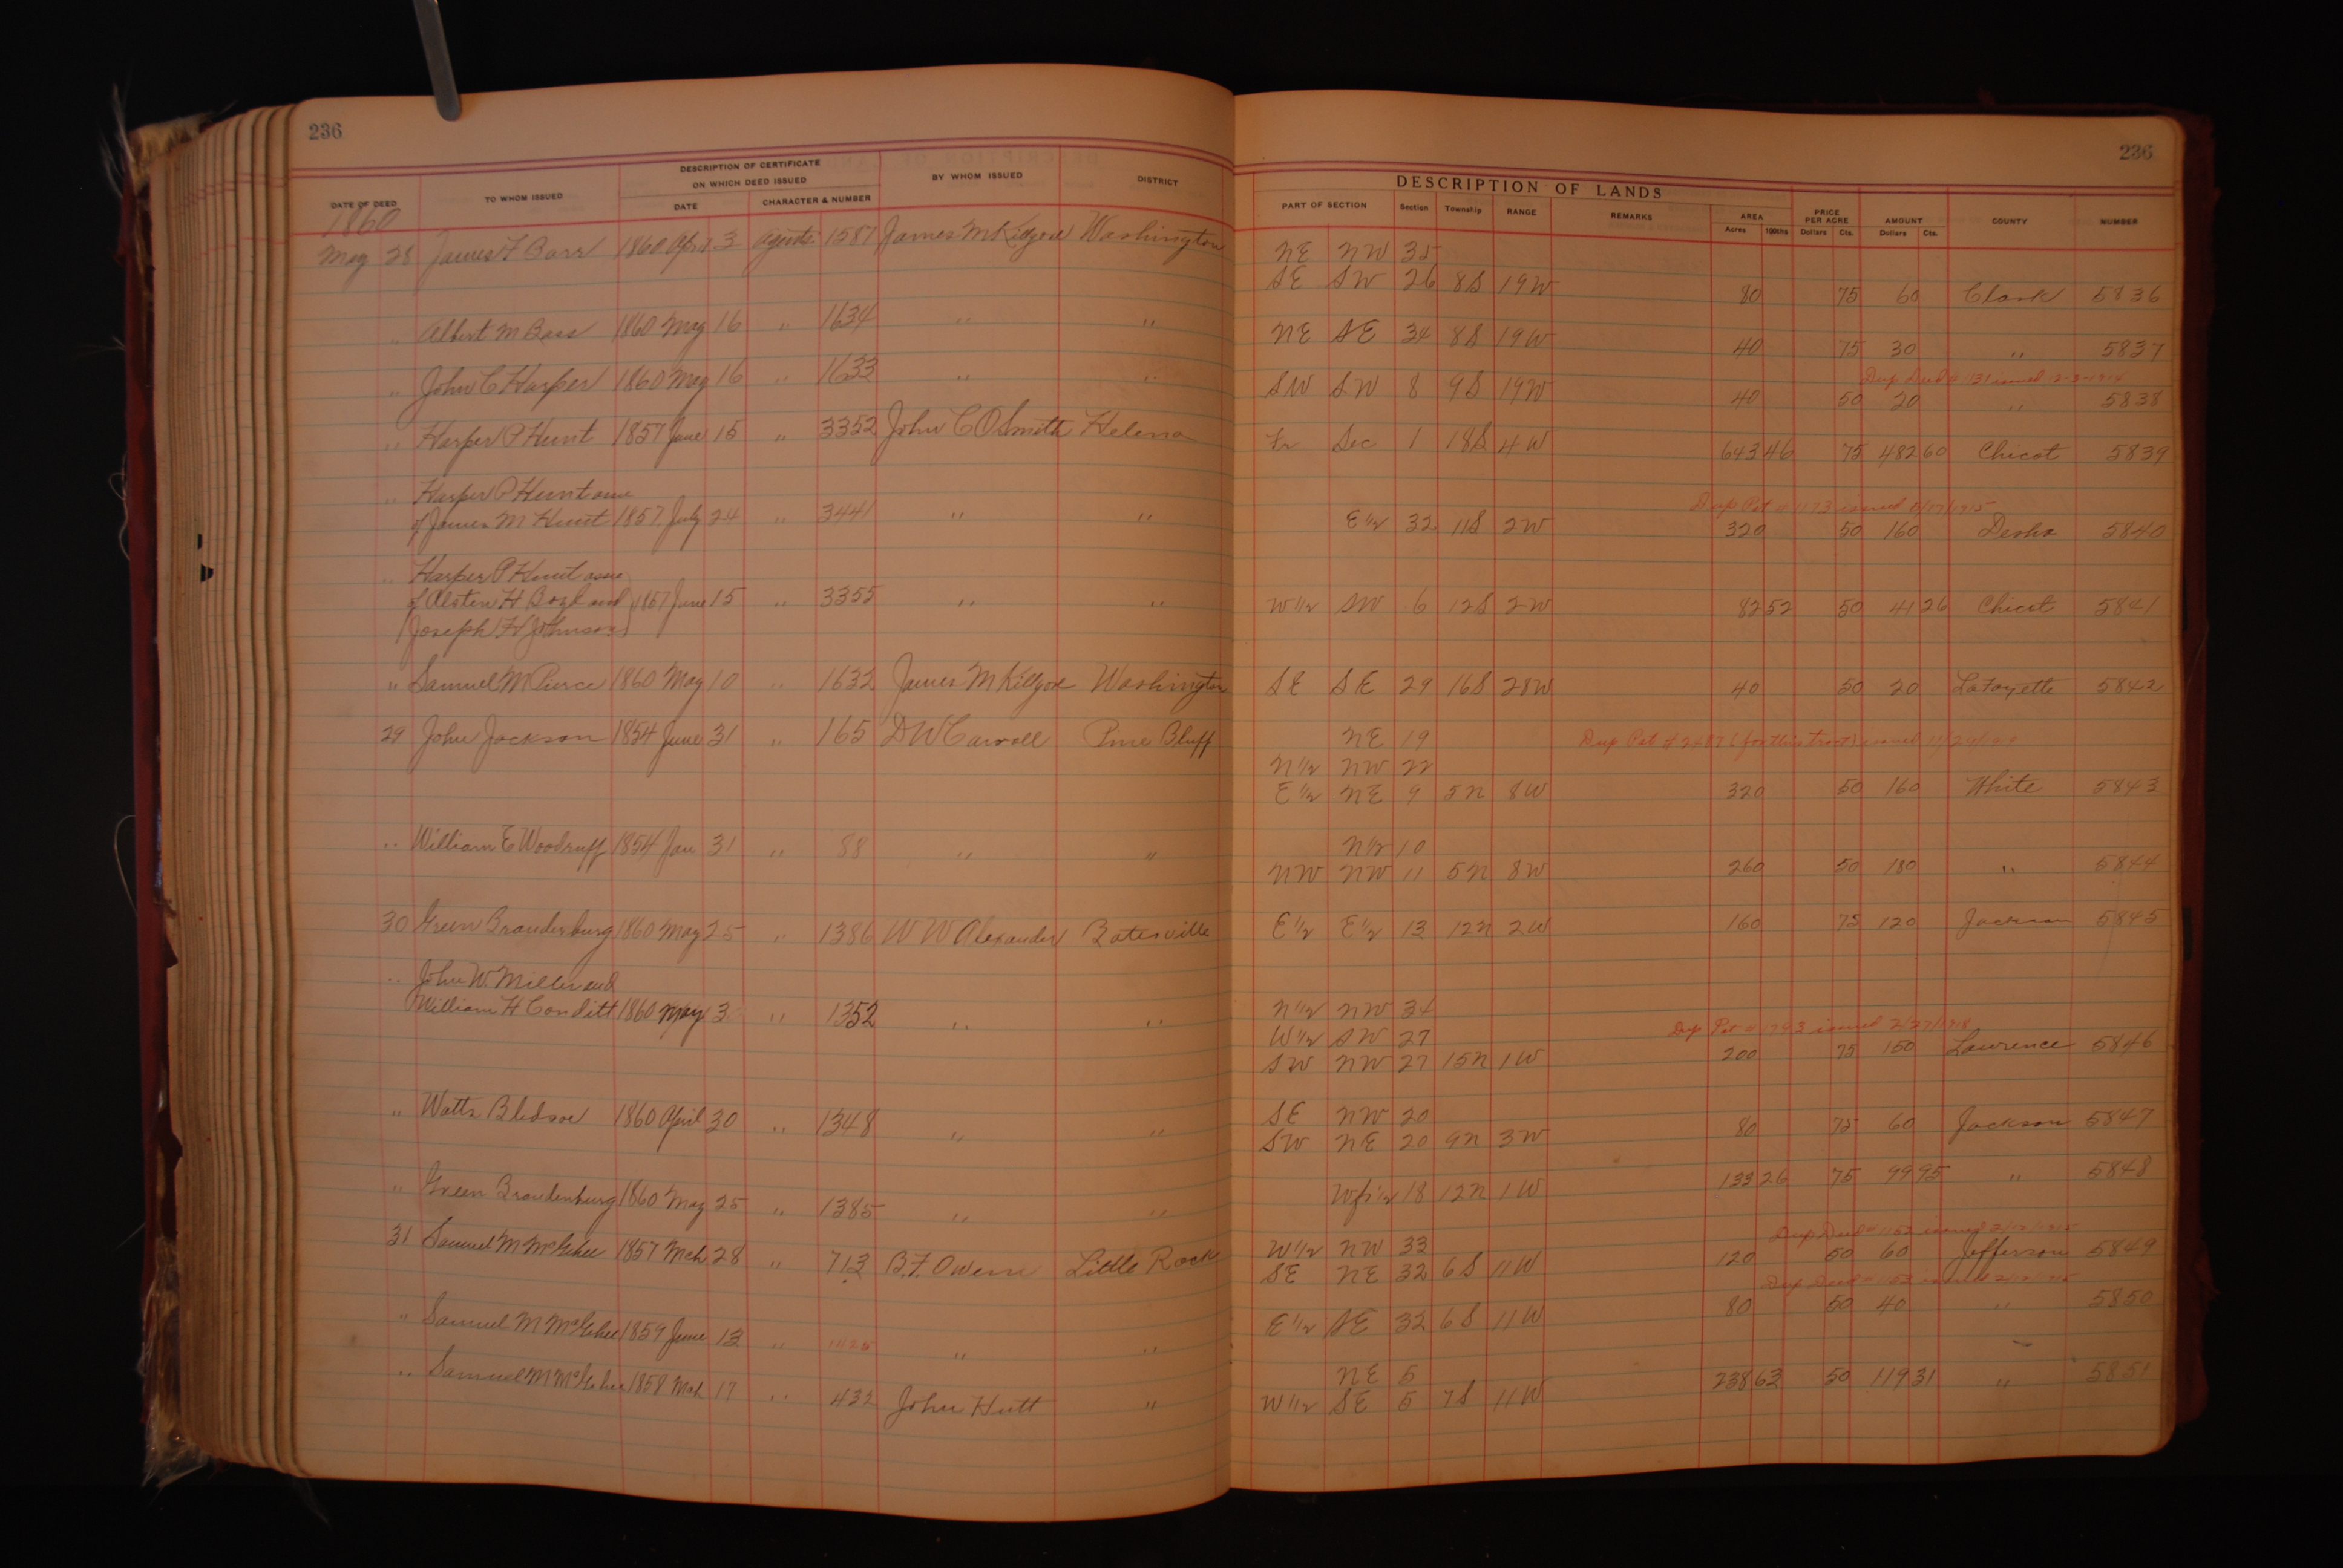 236
DATE OF DEED TO WHOM ISSUED DESCRIPTION OF CERTIFICATE ON WHICH DEED ISSUED DATE CHARACTER & NUMBER BY WHOM ISSUED DISTRICT
1860
May 28 James F Barr 1860 Apri 3 Agents 1581 James M Kidgore Washington
" Albert M Bass 1860 May 16 " 1634 " "
" John C Harper 1860 May 16 " 1633 " "
" Harper P Hunt 1857 June 15 " 3352 John C O Smith Helena
" Harper P Hunt asne
of James M Hunt 1857 July 24 " 3441 " "
" Harper P Hunt asne
of Alsten H Boyd and 1857 June 15 " 3355 " "
Joseph H Johnson
" Samuel M Pierce 1860 May 10 " 1632 James M Killgore Washington
29 John Jackson 1854 June 31 " 165 D W Carroll Pine Bluff
" William E Woodruff 1854 Jan 31 " 88 " "
30 Green Brandenburg 1860 May 25 " 1386 W W Alexander Batesville
" John W. Miller and
William H Conditt 1860 May 3 " 1352 " "
" Watts Bledsoe 1860 April 30 " 1348 " "
" Green Brandenburg 1860 May 25 " 1385 " "
31 Samuel M McGehee 1857 Mch 28 " 713 B. F. Owens Little Rock
" Samuel M McGehee 1859 June 13 " " "
" Samuel M McGehee 1858 Mch 17 " 432 John Hutt "
236
DESCRIPTION OF LANDS
PART OF SECTION Section Township RANGE REMARKS AREA Acres 100ths PRICE PER ACRE Dollars Cts. AMOUNT Dollars Cts. COUNTY NUMBER
NE NW 35
SE SW 26 8S 19W 80 75 60 Clark 5836
NE SE 34 8S 19W 40 75 30 " 5837
Dup Deed # 1131 issued 2-3-1914
SW SW 8 9S 19W 40 50 20 " 5838
Fr Sec 1 18S 4W 643 46 75 482 60 Chicot 5839
Dup Pat # 1173 issued
E 1/2 32 11S 2W 320 50 160 Desha 5840
W 1/2 SW 6 12S 2W 82 52 50 41 26 Chicot 5841
SE SE 29 16S 28W 40 50 20 LaFayette 5842
NE 19 Dup Pat # 2487 (for this tract) issued
N 1/2 NW 22
E 1/2 NE 9 5N 8W 320 50 160 White 5843
N 1/2 10
NW NW 11 5N 8W 260 50 180 " 5844
E 1/2 E 1/2 13 12N 2W 160 75 120 Jackson 5845
N 1/2 NW 34
W 1/2 SW 27 Dup Pat # 1793 issued 2/27/1918
SW NW 27 15N 1W 200 75 150 Lawrence 5846
SE NW 20
SW NE 20 9N 3W 80 75 60 Jackson 5847
Wfr 1/2 18 12N 1W 133 26 75 99 95 " 5848
Dup Deed # 1152 issued
W 1/2 NW 33
SE NE 32 6S 11W 120 50 60 Jefferson 5849
Dup Deed # 1152 issued
E 1/2 SE 32 6S 11W 80 50 40 " 5850
NE 5
W 1/2 SE 5 7S 11W 238 63 50 119 31 " 5851